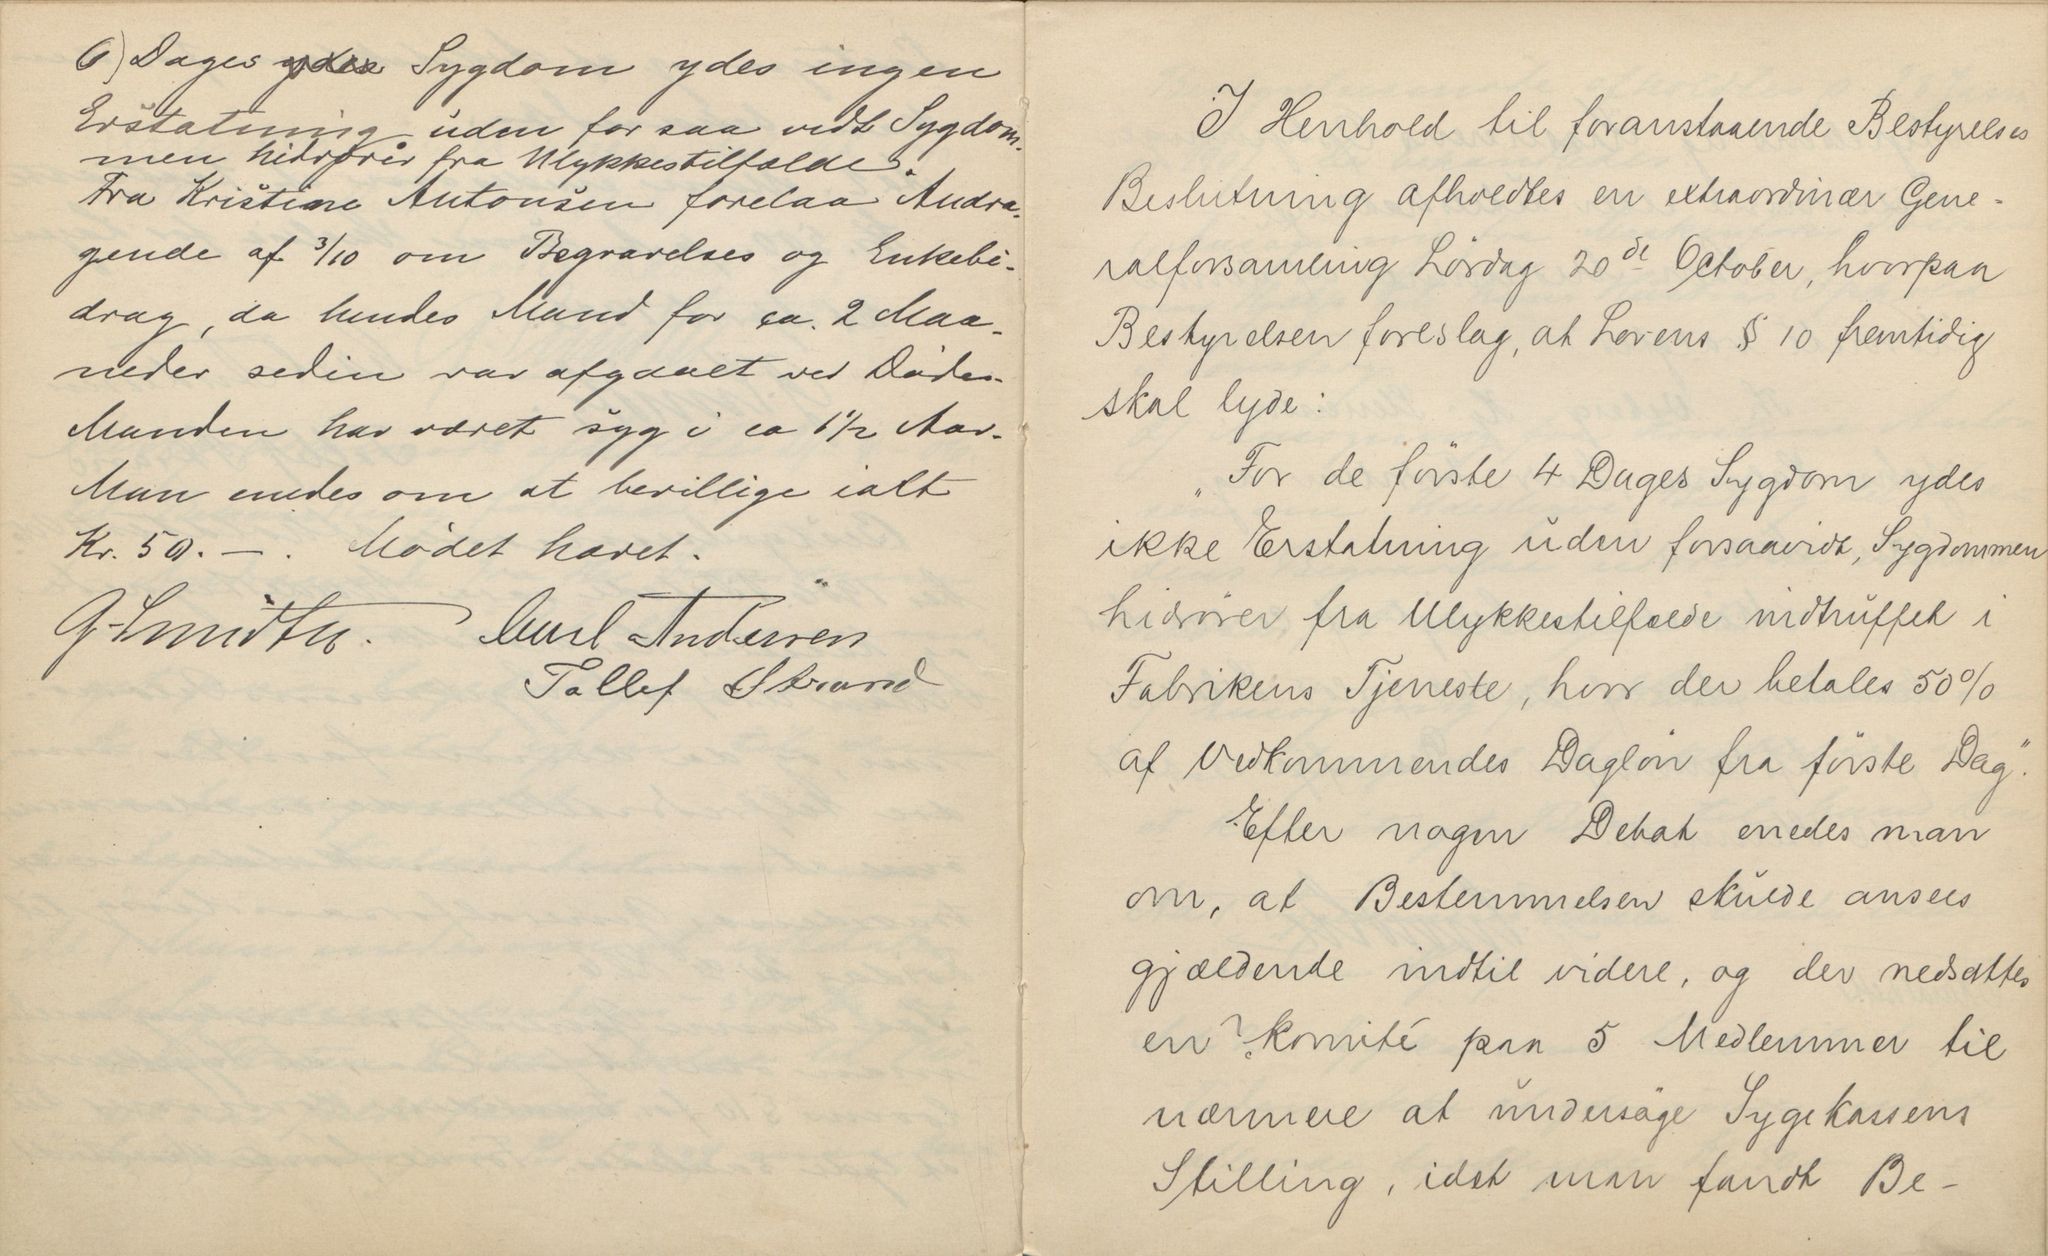 6) Dages ydes Sygdom ydes ingen
Erstatning uden for saa vidt Sygdom-
men hidrører fra Ulykkestilfælde.
Fra Kristine Antonsen forelaa Andra-
gende af 3/10 om Begravelses og Enkebi-
drag, da hendes Mand for ca. 2 Maa-
neder sedin var afgaaet ved Døden.
Manden har været syg i ca 1 1/2 Aar.
Man enedes om at bevillige ialt
Kr. 50. — . Mødet hævet.
G. Smidth. Carl Andersen
Tallef Strand
I Henhold til foranstaaende Bestyrelses
Beslutning afholdtes en extraordinær Gene-
ralforsamling Lördag 20de October, hvorpaa
Bestyrelsen foreslag, at Lovens § 10 fremtidig
skal lyde:
„For de förste 4 Dages Sygdom ydes
ikke Erstatning uden forsaavidt, Sygdommen
hidrörer fra Ulykkestilfælde indtruffet i
Fabrikens Tjeneste, hvor der betales 50%
af Vedkommendes Daglön fra förste Dag".
Efter nogen Debat enedes man
om, at Bestemmelsen skulde ansees
gjældende indtil videre, og der nedsattes
en Komité paa 5 Medlemmer til
nærmere at undersöge Sygekassens
Stilling, idet man fandt Be-